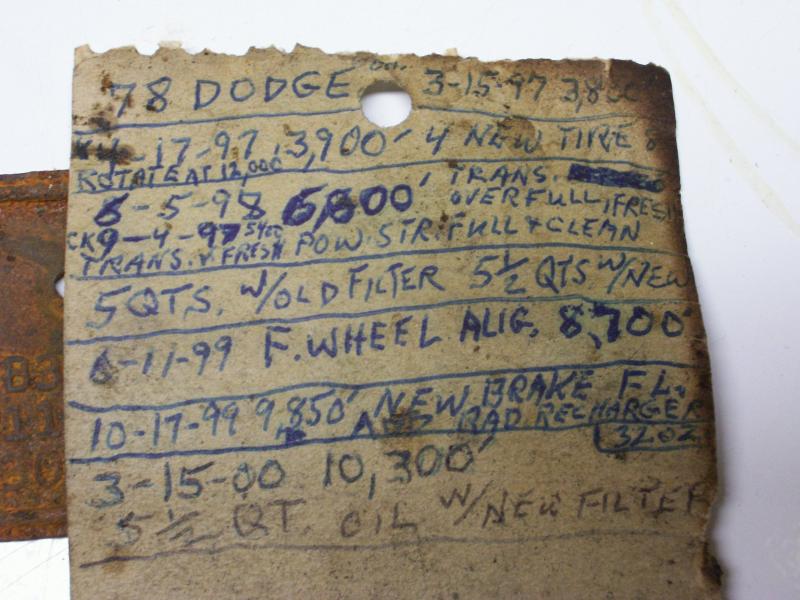 78 DODGE 3-15-97 3,8
4-17-97 3,900' 4 NEW TIRES
ROTATE AT 12,000
6-5-98 6,600' TRANS.
OVERFULL, FRESH
CK 9-4-97 POW. STR. FULL & CLEAN
TRANS. V. FRESH
5 QTS. W/OLD FILTER 5½ QTS W/NEW
6-11-99 F. WHEEL ALIG. 8,700'
10-17-99 9,850' NEW BRAKE FL.
ADD RAD. RECHARGER
32 OZ
3-15-00 10,300'
5½ QT. OIL W/NEW FILTER